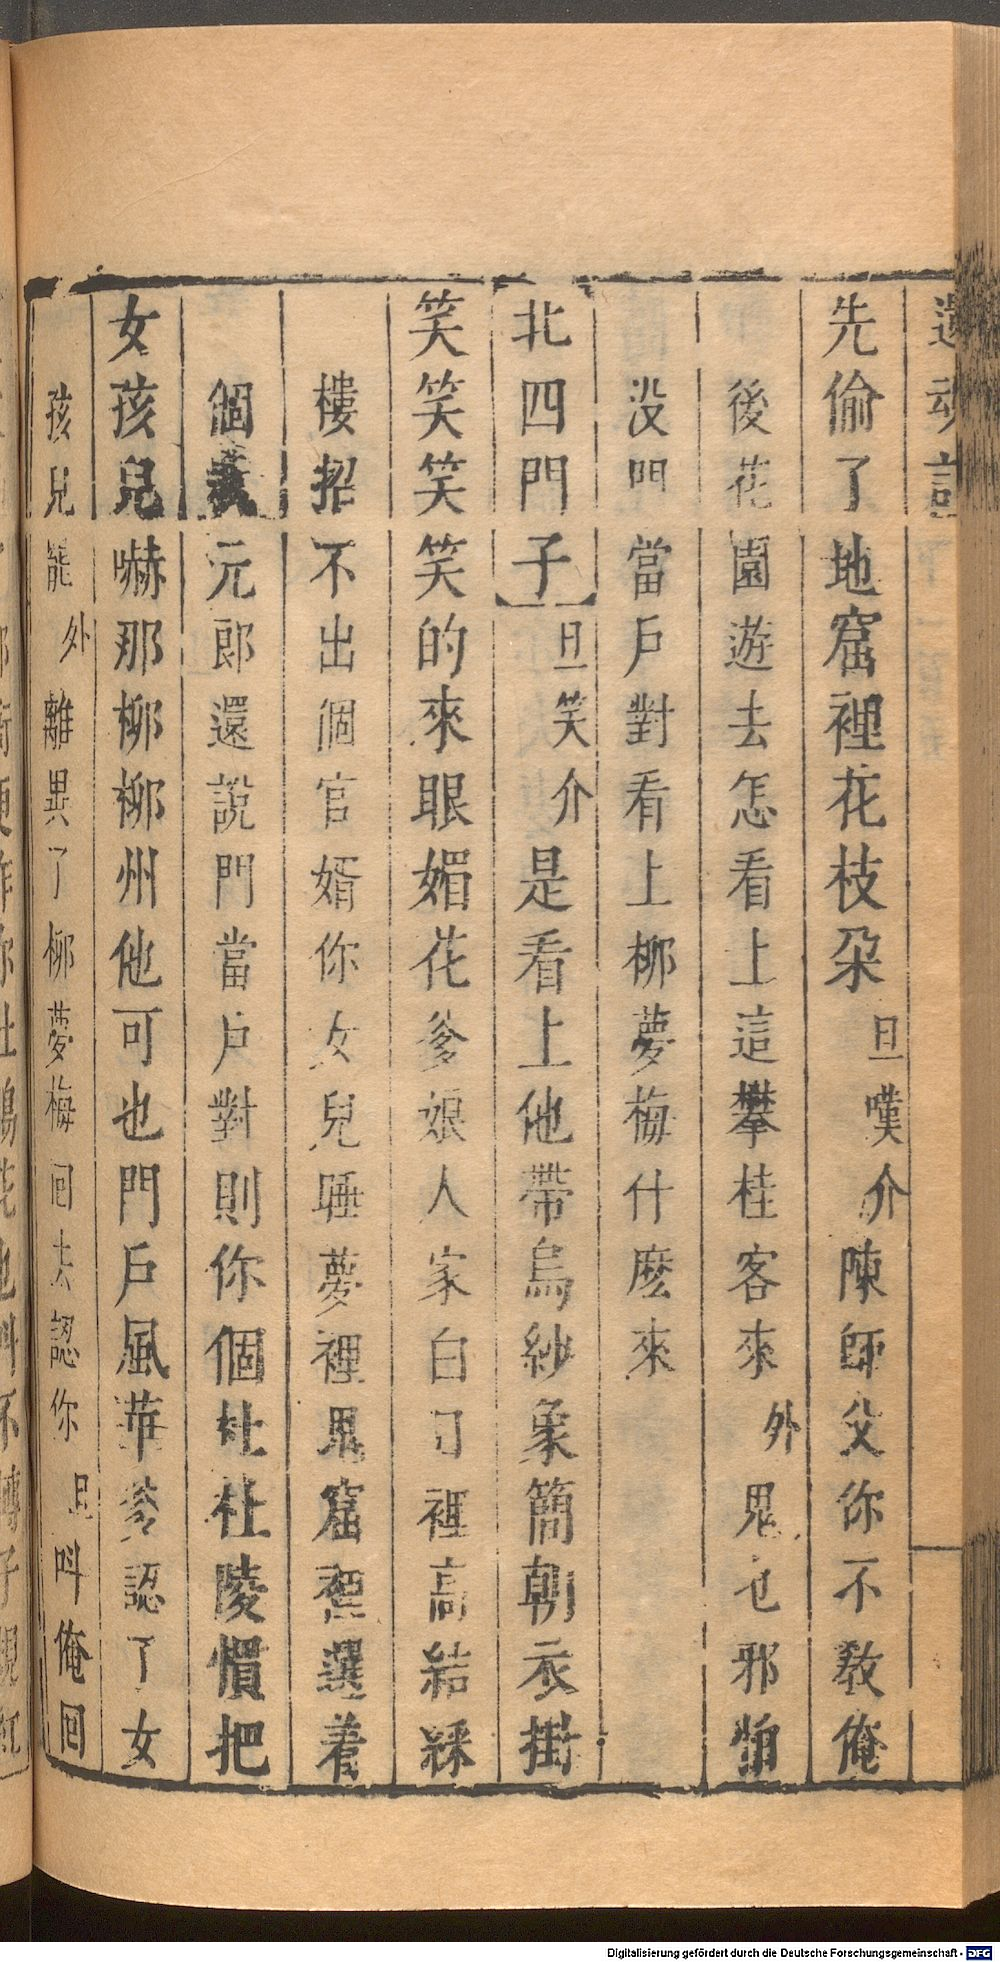 還魂記
先偷了地窟裡花枝朶旦嘆介陳師父你不敎俺
後花園遊去怎看上這攀桂客來外鬼乜邪怕
没門當戶對看上柳夢梅什麽來
北四門子旦笑介是看上他帶烏紗象簡朝衣掛
笑笑笑笑的來眼媚花爹娘人家白日裡高結綵
樓招不出個官婿你女兒睡夢裡鬼窟裡選着
個狀元郎還說門當戶對則你個杜杜陵慣把
女孩兒嚇那柳柳州他可也門戶風華爹認了女
孩兒罷外離異了柳夢梅囘去認你旦叫俺囘
Digitalisierung gefördert durch die Deutsche Forschungsgemeinschaft - DFG